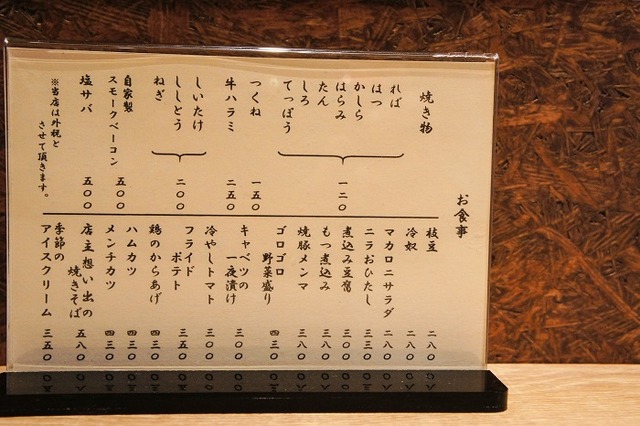 お食事
焼き物
れば
はつ
かしら
はらみ
たん
しろ
てっぽう
一二〇
つくね 一五〇
牛ハラミ 二五〇
しいたけ
ししとう
ねぎ
二〇〇
自家製
スモークベーコン 五〇〇
塩サバ 五〇〇
※当店は外税と
させて頂きます。
枝豆 二八〇
冷奴 二八〇
マカロニサラダ 二八〇
ニラおひたし 三三〇
煮込み豆腐 三〇〇
もつ煮込み 三三〇
焼豚メンマ 三八〇
ゴロゴロ
野菜盛り 四三〇
キャベツの
一夜漬け 三〇〇
冷やしトマト 三〇〇
フライド
ポテト 三五〇
鶏のからあげ 四三〇
ハムカツ 四三〇
メンチカツ 四三〇
店主想い出の
焼きそば 五八〇
季節の
アイスクリーム 三五〇